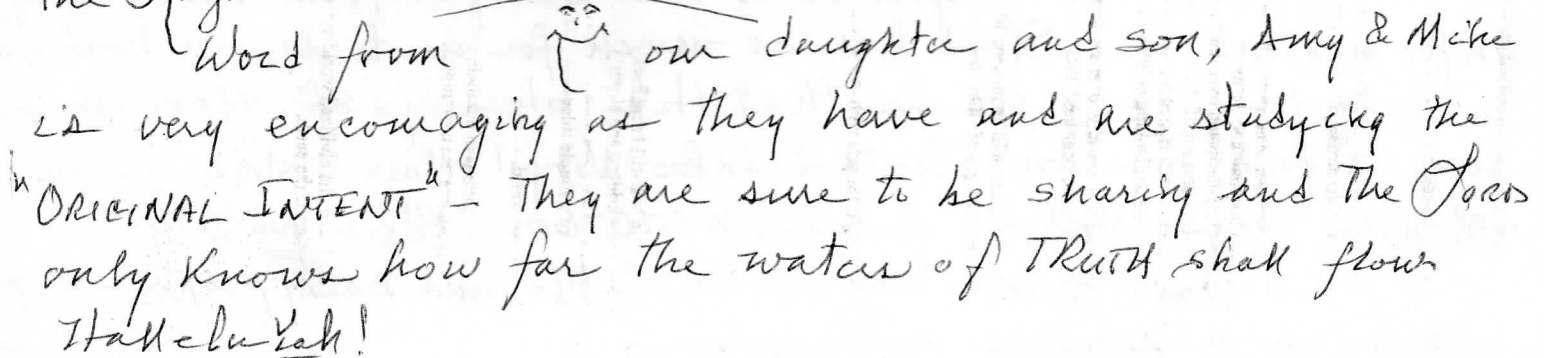 the
Word from our daughter and son, Amy & Mike
is very encouraging as they have and are studying the
"ORIGINAL INTENT" - They are sure to be sharing and the Lord
only Knows how far the waters of TRUTH shall flow
HalleluYah!